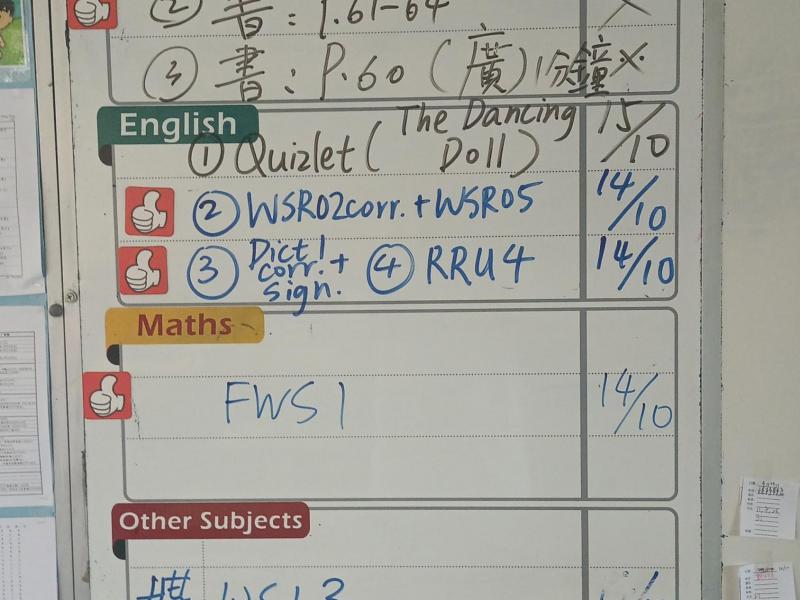 ② 書: P.61-64 X
③ 書: P.60 (廣) 1分鐘 X
English
① Quizlet ( The Dancing Doll ) 15/10
② WSR02corr. + WSR05 14/10
③ Dict 1 corr. + sign. ④ RRU4 14/10
Maths
FWS 1 14/10
Other Subjects